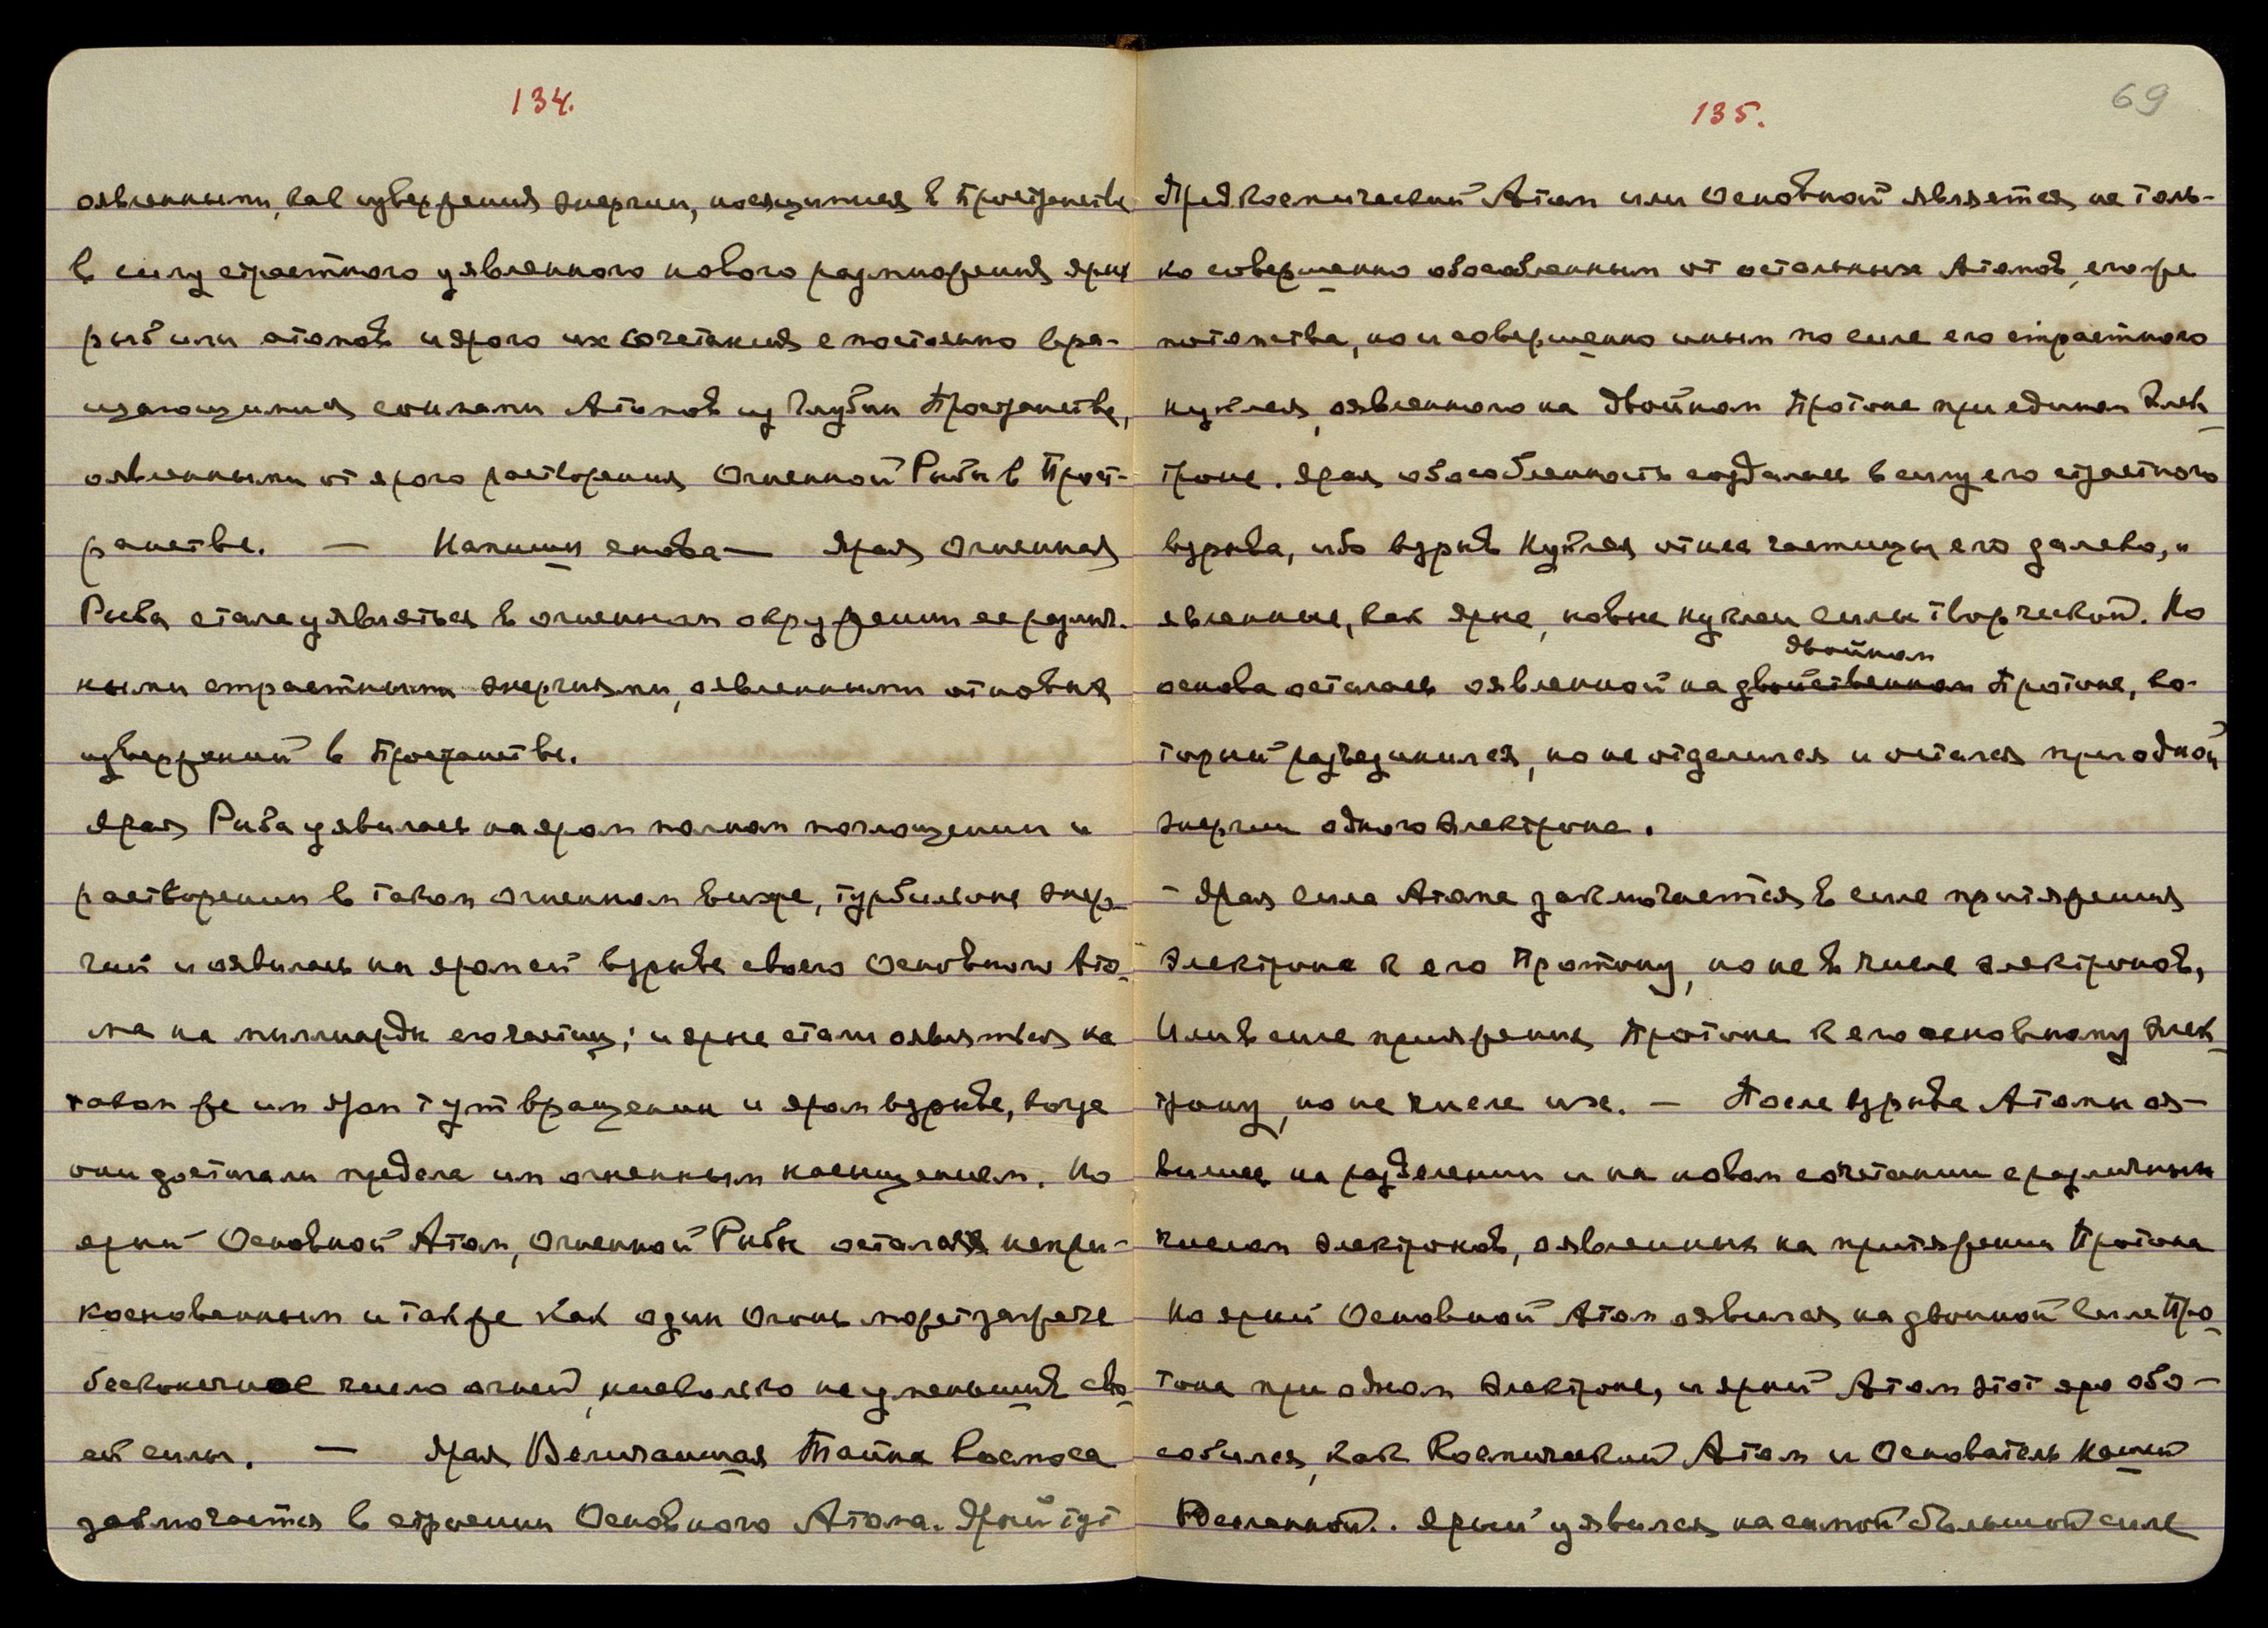 134.
оявленными, как извержения энергии, носящимися в Пространстве
в силу страстного уявленного нового размножения ярых
рыб или атомов и ярого их сочетания с постоянно вра-
щающимися сонмами Атомов из Глубин Пространства,
оявленными от ярого растворения Огненной Рыбы в Прост-
ранстве. — Напиши снова — Ярая Огненная
Рыба стала уявляться в огненном окружении ее различ-
ными страстными энергиями, оявленными от новых
извержений в Пространстве.
Ярая Рыба уявилась на яром полном поглощении и
растворении в таком огненном вихре, турбильоне энер-
гий и оявилась на яром ей взрыве своего Основного Ато-
ма на миллиарды его частиц; и ярые стали оявляться на
таком же им яром тут вращении и яром взрыве, когда
они достигали предела им огненным насыщением. Но
ярый Основной Атом, Огненной Рыбы остался непри-
косновенным и также как один Огонь может зажечь
бесконечное число огней, нисколько не уменьшив сво-
ей силы. — Ярая Величайшая Тайна Космоса
заключается в строении Основного Атома. Ярый тут
135.
69
Предкосмический Атом или Основной является не толь-
ко совершенно обособленным от остальных Атомов, его же
потомства, но и совершенно иным по силе его страстного
нуклея, оявленного на Двойном Протоне при едином Элек-
троне. Ярая обособленность создалась в силу его страстного
взрыва, ибо взрыв Нуклея отнес частицы его далеко, и
явленные, как ярые, новые нуклеи силы творческой. Но
двойном
основа осталась оявленной на двойственном Протоне, ко-
торый разъединился, но не отделился и остался при одной
энергии одного Электрона.
– Ярая сила Атома заключается в силе притяжения
Электрона к его Протону, но не в числе электронов,
Или в силе притяжения Протона к его основному Элек-
трону, но не числе их. — После взрыва Атомы оя-
вились на разделении и на новом сочетании с различным
числом электронов, оявленных на притяжении Протона
Но ярый Основной Атом оявился на двойной силе Про-
тона при одном Электроне, и ярый Атом этот яро обо-
собился, как Космический Атом и Основатель Нашей
Вселенной.. Ярый уявился на самой большой силе